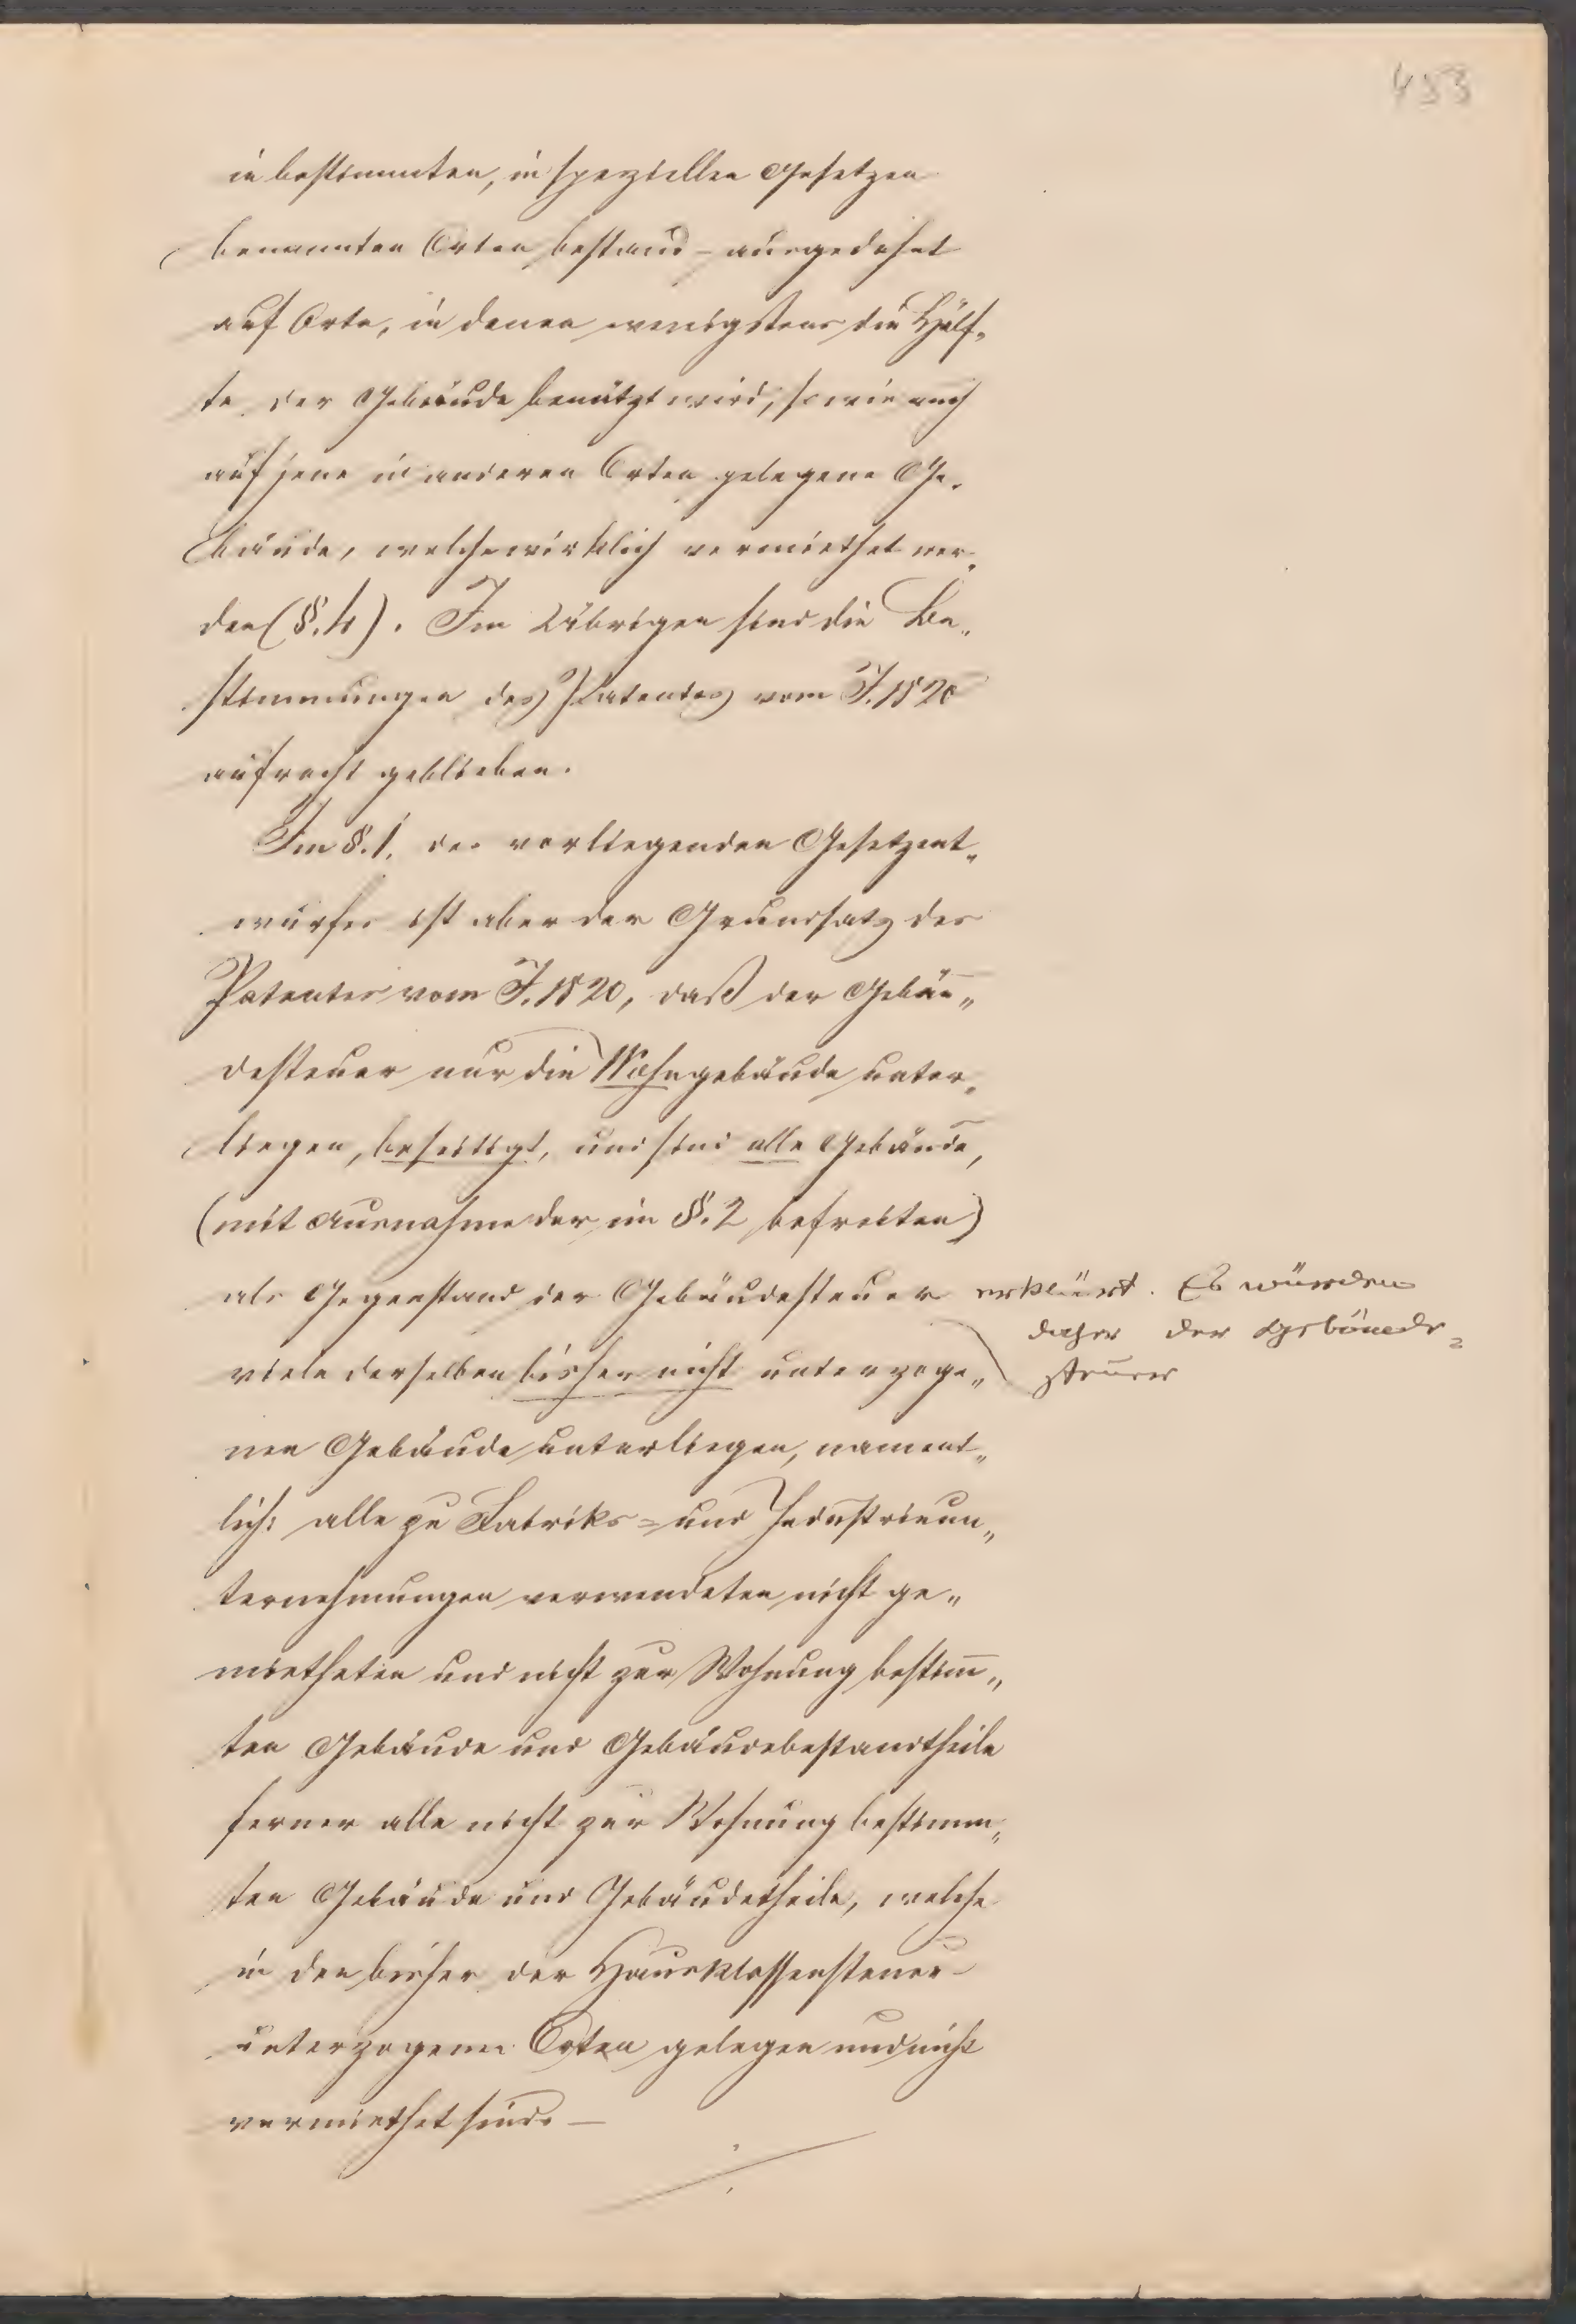 453
in bestimmten, in speziellen Gesetzen
benannten Orten bestand – ausgedehnt
auf Orte, in denen wenigstens die Hälf„
te der Gebäude benützt wird, sowie auch
auf jene in anderen Orten gelegene Ge„
bäude, welche wirklich vermiethet wer„
den (§. 4). Im Übrigen sind die Be„
stimmungen des Patentes vom J. 1820
aufrecht geblieben.
Im §. 1. des vorliegenden Gesetzent„
wurfes ist aber der Grundsatz des
Patentes vom J. 1820, daß der Gebäu„
desteuer nur die Wohngebäude unter„
liegen, beseitigt, und sind alle Gebäude,
(mit Ausnahme der im §. 2 befreiten)
als Gegenstand der Gebäudesteuer erklärt. Es würden
daher der Gebäude=
steuer
viele derselben bisher nicht unterzoge„
nen Gebäude unterliegen, nament„
lich: alle zu Fabriks= und Industrieun„
ternehmungen verwendeten nicht ge„
mietheten und nicht zur Wohnung bestim̅„
ten Gebäude und Gebäudebestandtheile
ferner alle nicht zur Wohnung bestimm„
ten Gebäude und Gebäudetheile, welche
in den bisher der Hausklassensteuer
unterzogenen Orten gelegen und nicht
vermiethet sind. –